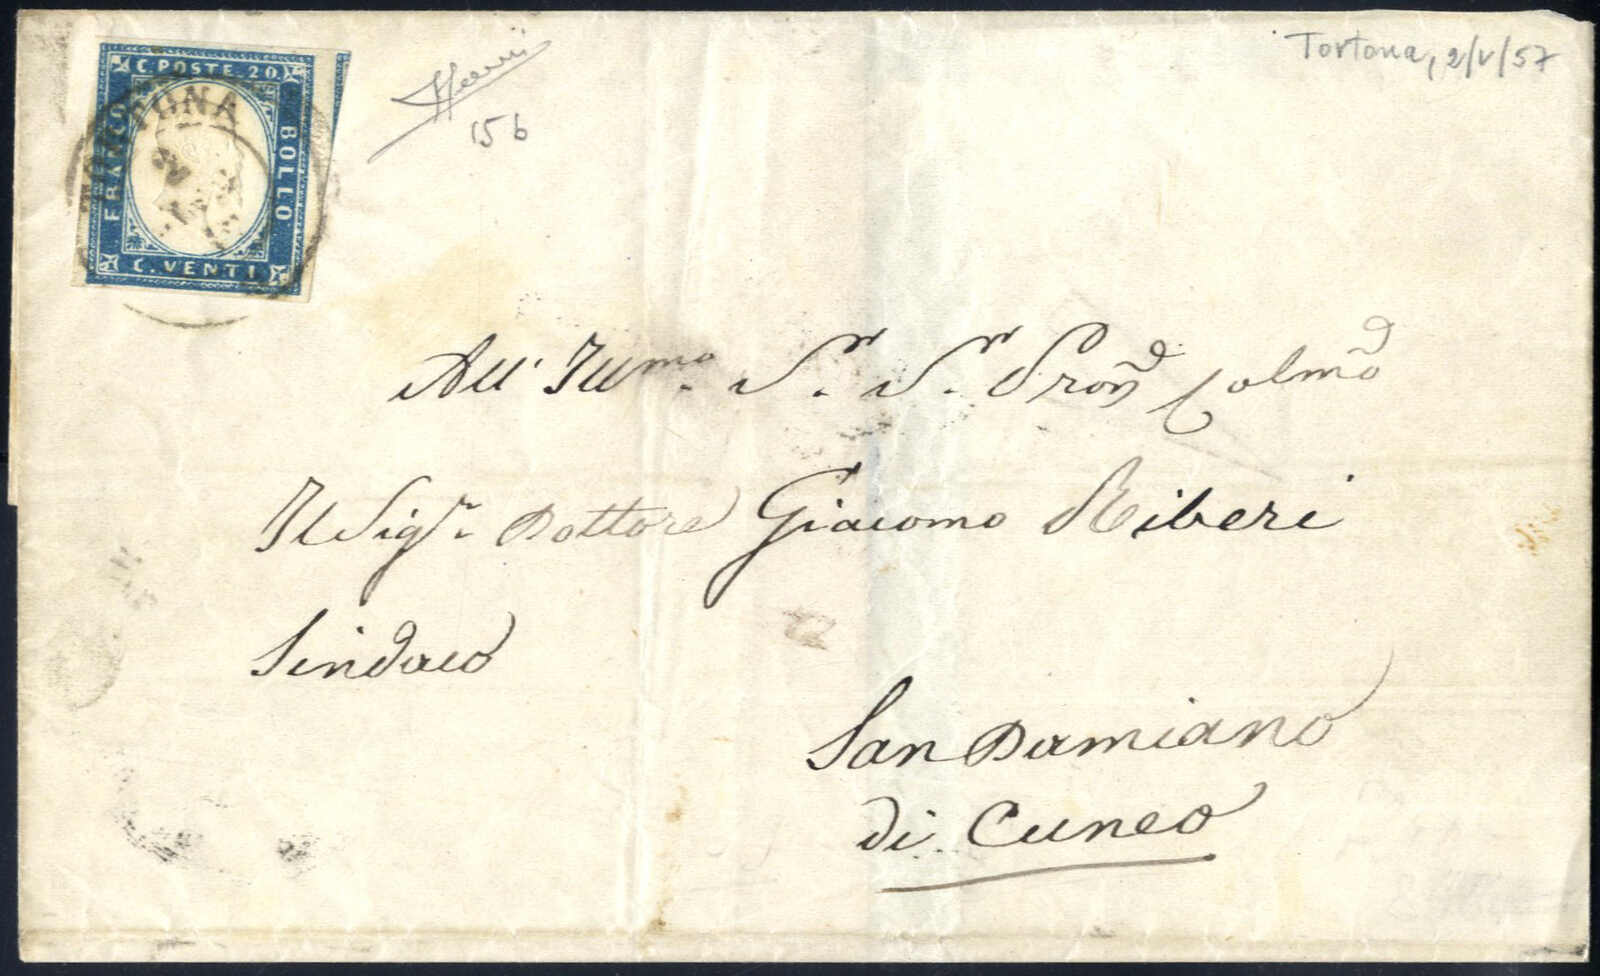 C. POSTE. 20
FRANCO
BOLLO
C. VENTI
TORTONA
15 b
Tortona, 2/V/57
All' Illmo. Sr. Sr. Pron Colmo
Il Sigr. Dottore Giacomo Riberi
Sindaco
San Damiano
di Cuneo